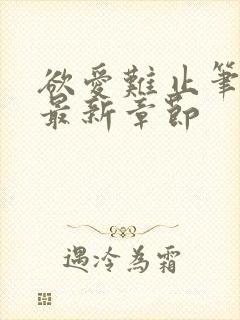 欲愛難止筆
最新章節
遇冷為霜